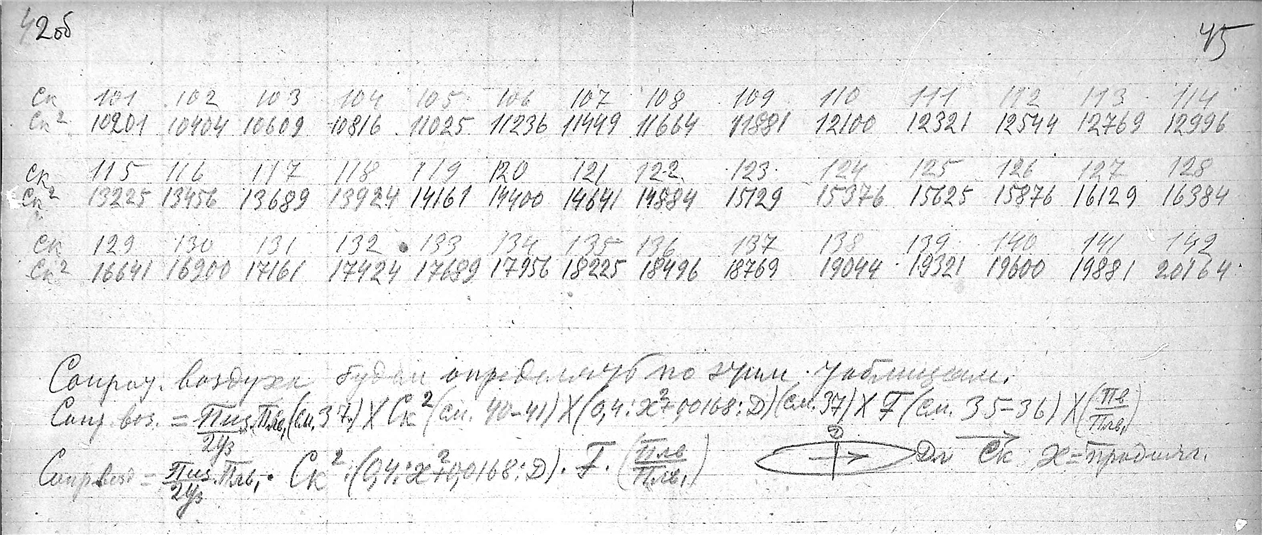 42об 45
Ск 101 102 103 104 105 106 107 108 109 110 111 112 113 114
Ск² 10201 10404 10609 10816 11025 11236 11449 11664 11881 12100 12321 12544 12769 12996
Ск 115 116 117 118 119 120 121 122 123 124 125 126 127 128
Ск² 13225 13456 13689 13924 14161 14400 14641 14884 15129 15376 15625 15876 16129 16384
Ск 129 130 131 132 133 134 135 136 137 138 139 140 141 142
Ск² 16641 16900 17161 17424 17689 17956 18225 18496 18769 19044 19321 19600 19881 20164
Сопрот. воздуха будем определять по этим таблицам.
Сопр. воз. = Пиз/2Уз · Плв₁ (см. 37) X Ск² (см. 40–41) X (0,4:x²+0,0168:D) (см. 37) X F (см. 35–36) X (Пв/Плв₁)
D
Сопр. возд = Пиз/2Уз · Плв₁ · Ск² · (0,4:x²+0,0168:D) · F · (Плв/Плв₁) Дл Ск x=продолг.